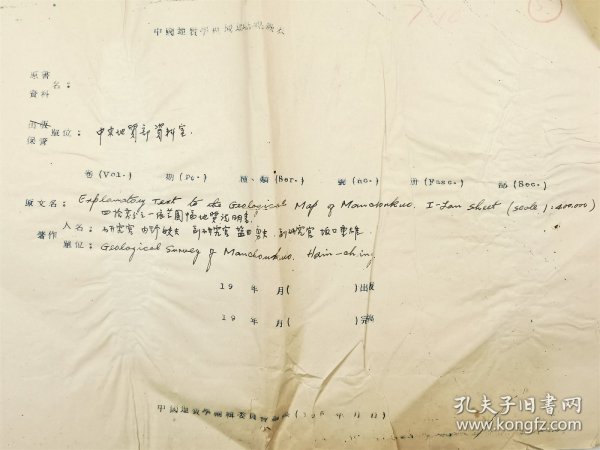 中國地質學
原著
資料 名：
出版
保管 單位： 中央地質部資料室.
卷(Vol.) 期(Pt.) 種、類(Ser.) 號(no.) 冊(Fasc.) 部(Sec.)
原文名： Explanatory Text to the Geological Map of Manchoukuo. I-Lan sheet (scale 1:400,000)
四拾萬分之一依蘭圖幅地質說明書
著作 人名： 研究官
單位： Geological Survey of Manchoukuo. Hsin-ching
19 年 月( )出版
19 年 月( )完
中國地質學編輯委員會
孔夫子旧书网
www.kongfz.com